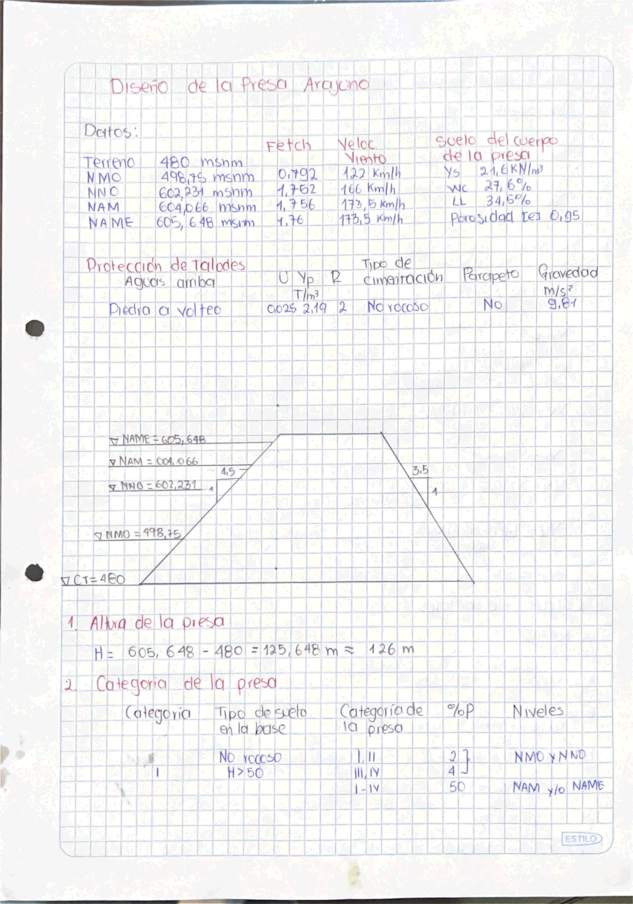 Diseño de la Presa Arajuno
Datos:
Fetch Veloc Viento Suelo del cuerpo de la presa
Terreno 480 msnm
NMO 498,75 msnm 0,792 122 Km/h γs 21,6 KN/m³
NNO 602,231 msnm 1,752 166 Km/h Wc 27,6%
NAM 604,066 msnm 1,756 173,5 Km/h LL 34,5%
NAME 605,648 msnm 1,76 173,5 Km/h Porosidad [e] 0,95
Protección de Taludes
Aguas arriba U γp R Tipo de cimentación Parapeto Gravedad
T/m³ m/s²
Piedra a volteo 0,025 2,19 2 No rocoso No 9,81
▽ NAME = 605,648
▽ NAM = 604,066
▽ NNO = 602,231
4,5
1
3,5
1
▽ NMO = 498,75
▽ CT = 480
1. Altura de la presa
H = 605,648 - 480 = 125,648 m ≈ 126 m
2. Categoria de la presa
Categoria Tipo de suelo en la base Categoría de la presa %P Niveles
No rocoso I, II 2 NMO y NNO
I H>50 III, IV 4
I-IV 50 NAM y/o NAME
ESTILO